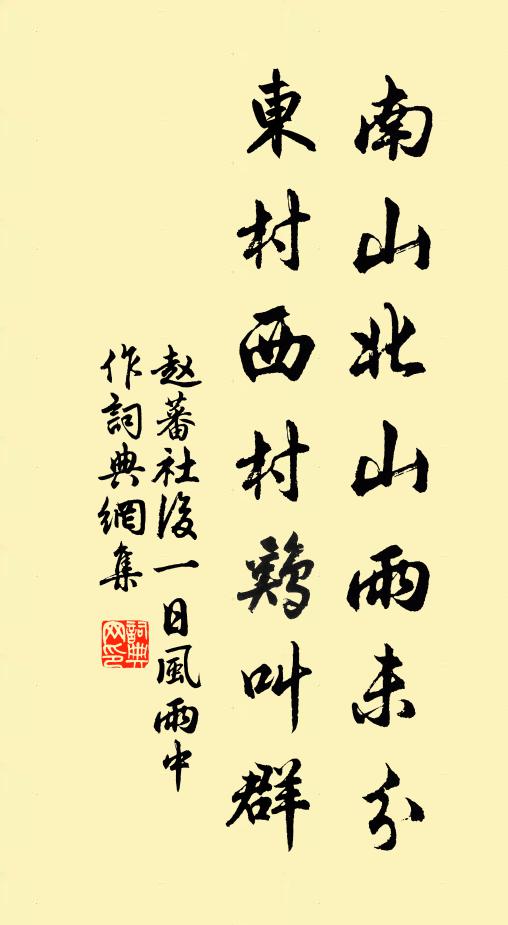 南山北山雨未分
東村西村鷄叫群
趙蕃社後一日風雨中
作詞典網集
詞典
网印